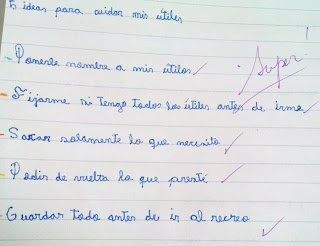 5 ideas para cuidar mis útiles
- Ponerle nombre a mis útiles
Super
- Fijarme si tengo todos los útiles antes de irme
- Sacar solamente lo que necesito
- Pedir de vuelta lo que presté
- Guardar todo antes de ir al recreo